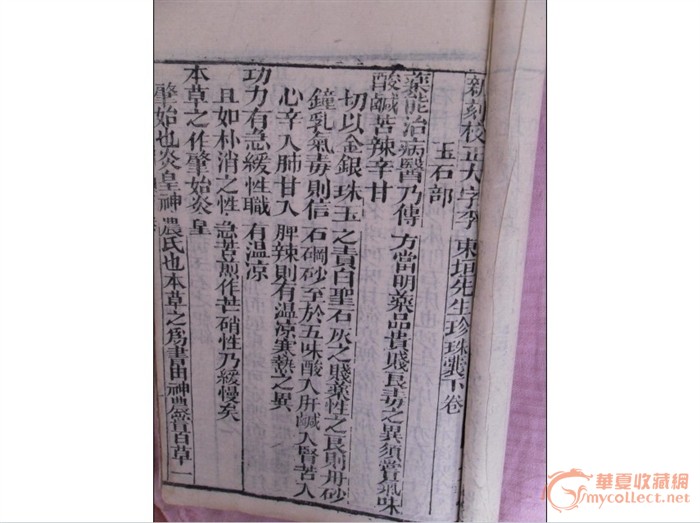 新刻校正大字李東垣先生珍珠囊下卷
玉石部
藥能治病醫乃傳方當明藥品貴賤良毒之異須嘗氣味
酸鹹苦辣辛甘
切以金銀珠玉之責白聖石灰之賤藥性之良則丹砂
鐘乳氣毒則信石硇砂至於五味酸入肝鹹入腎苦入
心辛入肺甘入脾辣則有温凉寒熱之異
功力有急緩性職有温凉
且如朴消之性急苦煎作芒硝性乃緩慢矣
本草之作肇始炎皇
肇始也炎皇神農氏也本草之為書由神農嘗百草一
華夏收藏網
mycollect.net